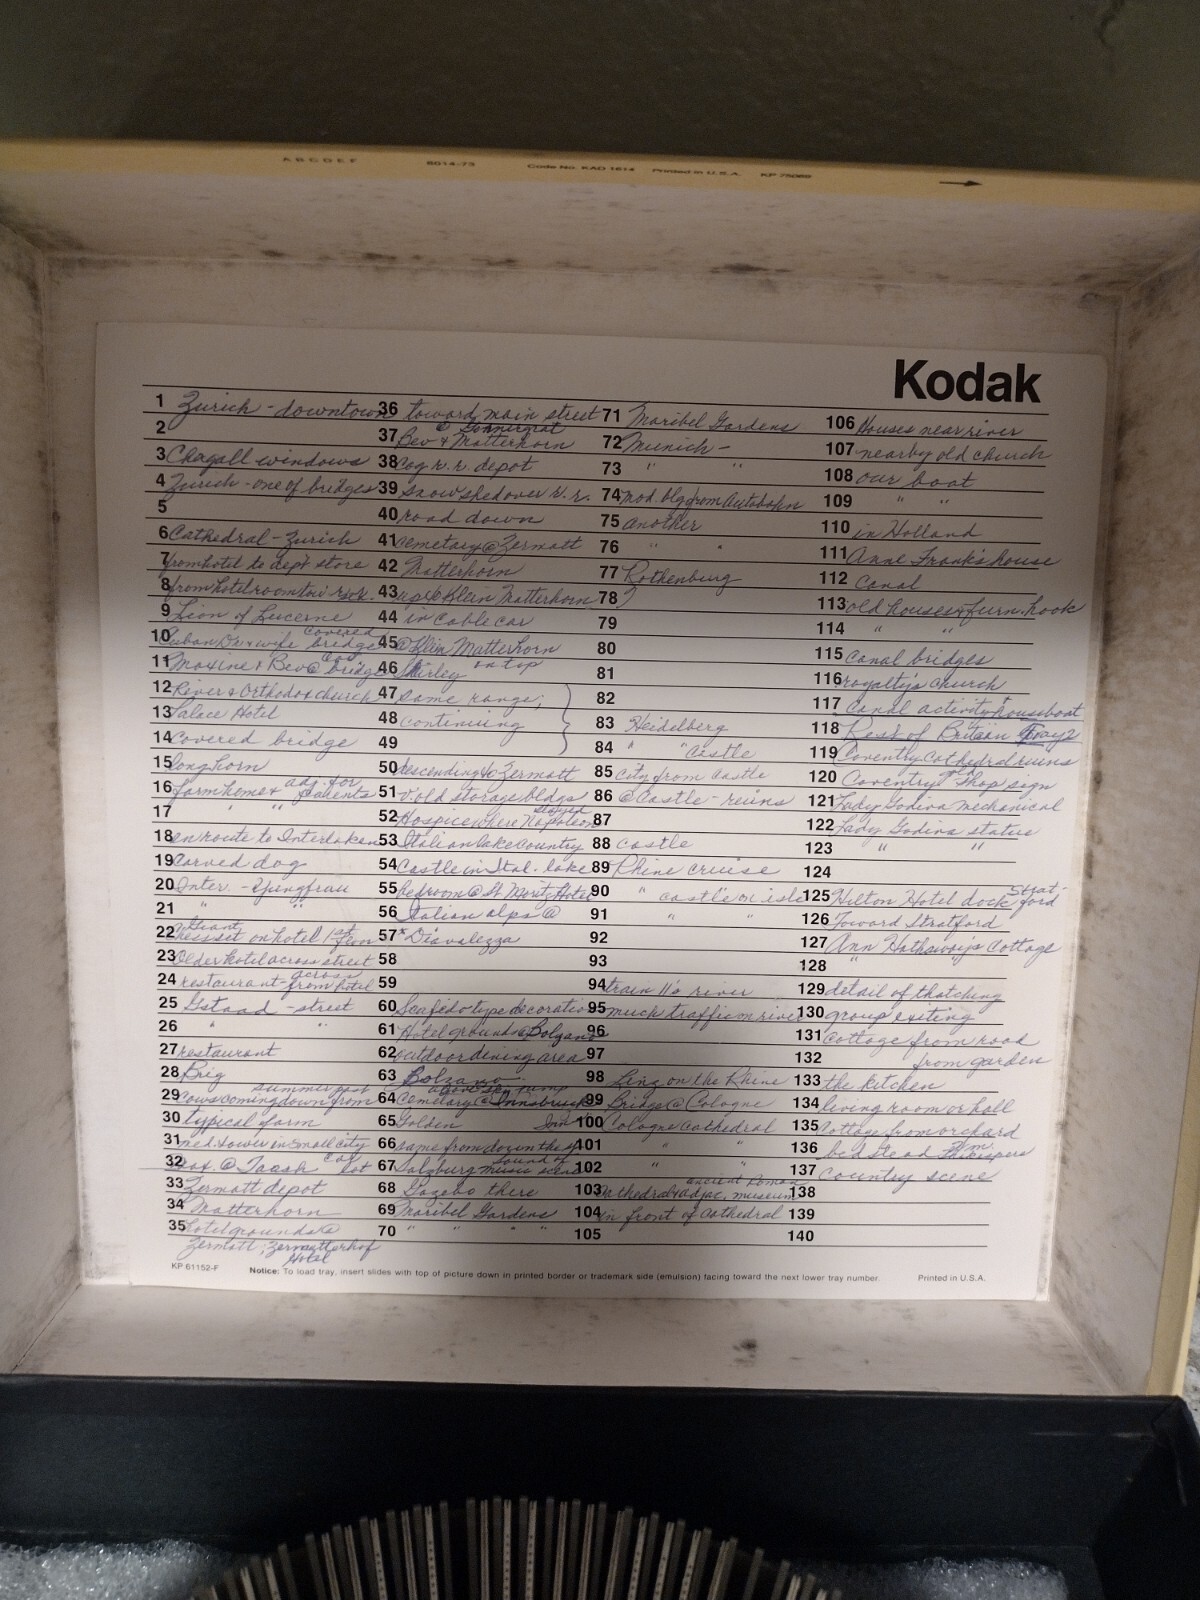 A B C D E F 8014-73 Code No. KAD 1614 Printed in U.S.A. KP 75069
Kodak
1 Zurich - downtown
2
3 Chagall windows
4 Zurich - one of bridges
5
6 Cathedral - Zurich
7 from hotel to dep't store
8 from hotel room
9 Lion of Lucerne
10 Cuban Dr. & wife covered bridge
11 Maxine & Bev @ cov. bridge
12 River & Orthodox church
13 Palace Hotel
14 Covered bridge
15 longhorn
16 farm home & adj. for parents
17 " " "
18 en route to Interlaken
19 Carved dog
20 Inter. - Yungfrau
21 " "
22 Giant chess set on hotel
23 Older hotel across street
24 restaurant - across from hotel
25 Gstaad - street
26 " "
27 restaurant
28 Brig
29 cows coming down from summer past
30 typical farm
31 med. tower in small city
32 @ Taesh car lot
33 Zermatt depot
34 Matterhorn
35 hotel grounds @
Zermatt; Zermatterhof
Hotel
36 toward main street
37 Bev & Matterhorn @ Gonnergrat
38 cog r.r. depot
39 snow shed over r.r.
40 road down
41 cemetary @ Zermatt
42 Matterhorn
43 up to Klein Matterhorn
44 in cable car
45 @ Klein Matterhorn
46 Shirley on top
47 same range;
48 continuing
49
50 descending to Zermatt
51 v. old storage bldgs
52 Hospice where Napoleon stopped
53 Italian lake country
54 Castle in Ital. lake
55 Bedroom @ St Moritz Hotel
56 Italian alps @
57 Diavalezza
58
59
60 Scafido-type decoration
61 Hotel grounds @ Bolzano
62 outdoor dining area
63 Bolzano
64 Cemetary @ Innsbruck above ski jump
65 Golden
66 same from down the st
67 Salzburg Sound of music scene
68 Gazebo there
69 Maribel Gardens
70 " " " "
71 Maribel Gardens
72 Munich -
73 " "
74 mod. blg from Autobahn
75 another
76 " "
77 Rothenburg
78
79
80
81
82
83 Heidelberg
84 " " Castle
85 City from Castle
86 @ Castle - ruins
87
88 Castle
89 Rhine cruise
90 " castle on isle
91 " "
92
93
94 train ll's river
95 much traffic on river
96
97
98 Linz on the Rhine
99 Bridge @ Cologne
100 Cologne cathedral
101 " "
102 " "
103 Cathedral & adjac. ancient Roman museum
104 in front of cathedral
105
106 Houses near river
107 nearby old church
108 our boat
109 " "
110 in Holland
111 Anne Frank's house
112 Canal
113 old houses & furn. hook
114 " "
115 Canal bridges
116 royalty's church
117 Canal activity & houseboat
118 Rest of Britain Tray 2
119 Coventry Cathedral ruins
120 Coventry old shop sign
121 Lady Godiva mechanical
122 Lady Godiva statue
123 " "
124
125 Hilton Hotel dock Stratford
126 Toward Stratford
127 Ann Hathaway's Cottage
128 " "
129 detail of thatching
130 group exiting
131 Cottage from road
132 from garden
133 the kitchen
134 living room or hall
135 Cottage from orchard
136 bedstead
137 Country scene
138
139
140
KP 61152-F Notice: To load tray, insert slides with top of picture down in printed border or trademark side (emulsion) facing toward the next lower tray number. Printed in U.S.A.